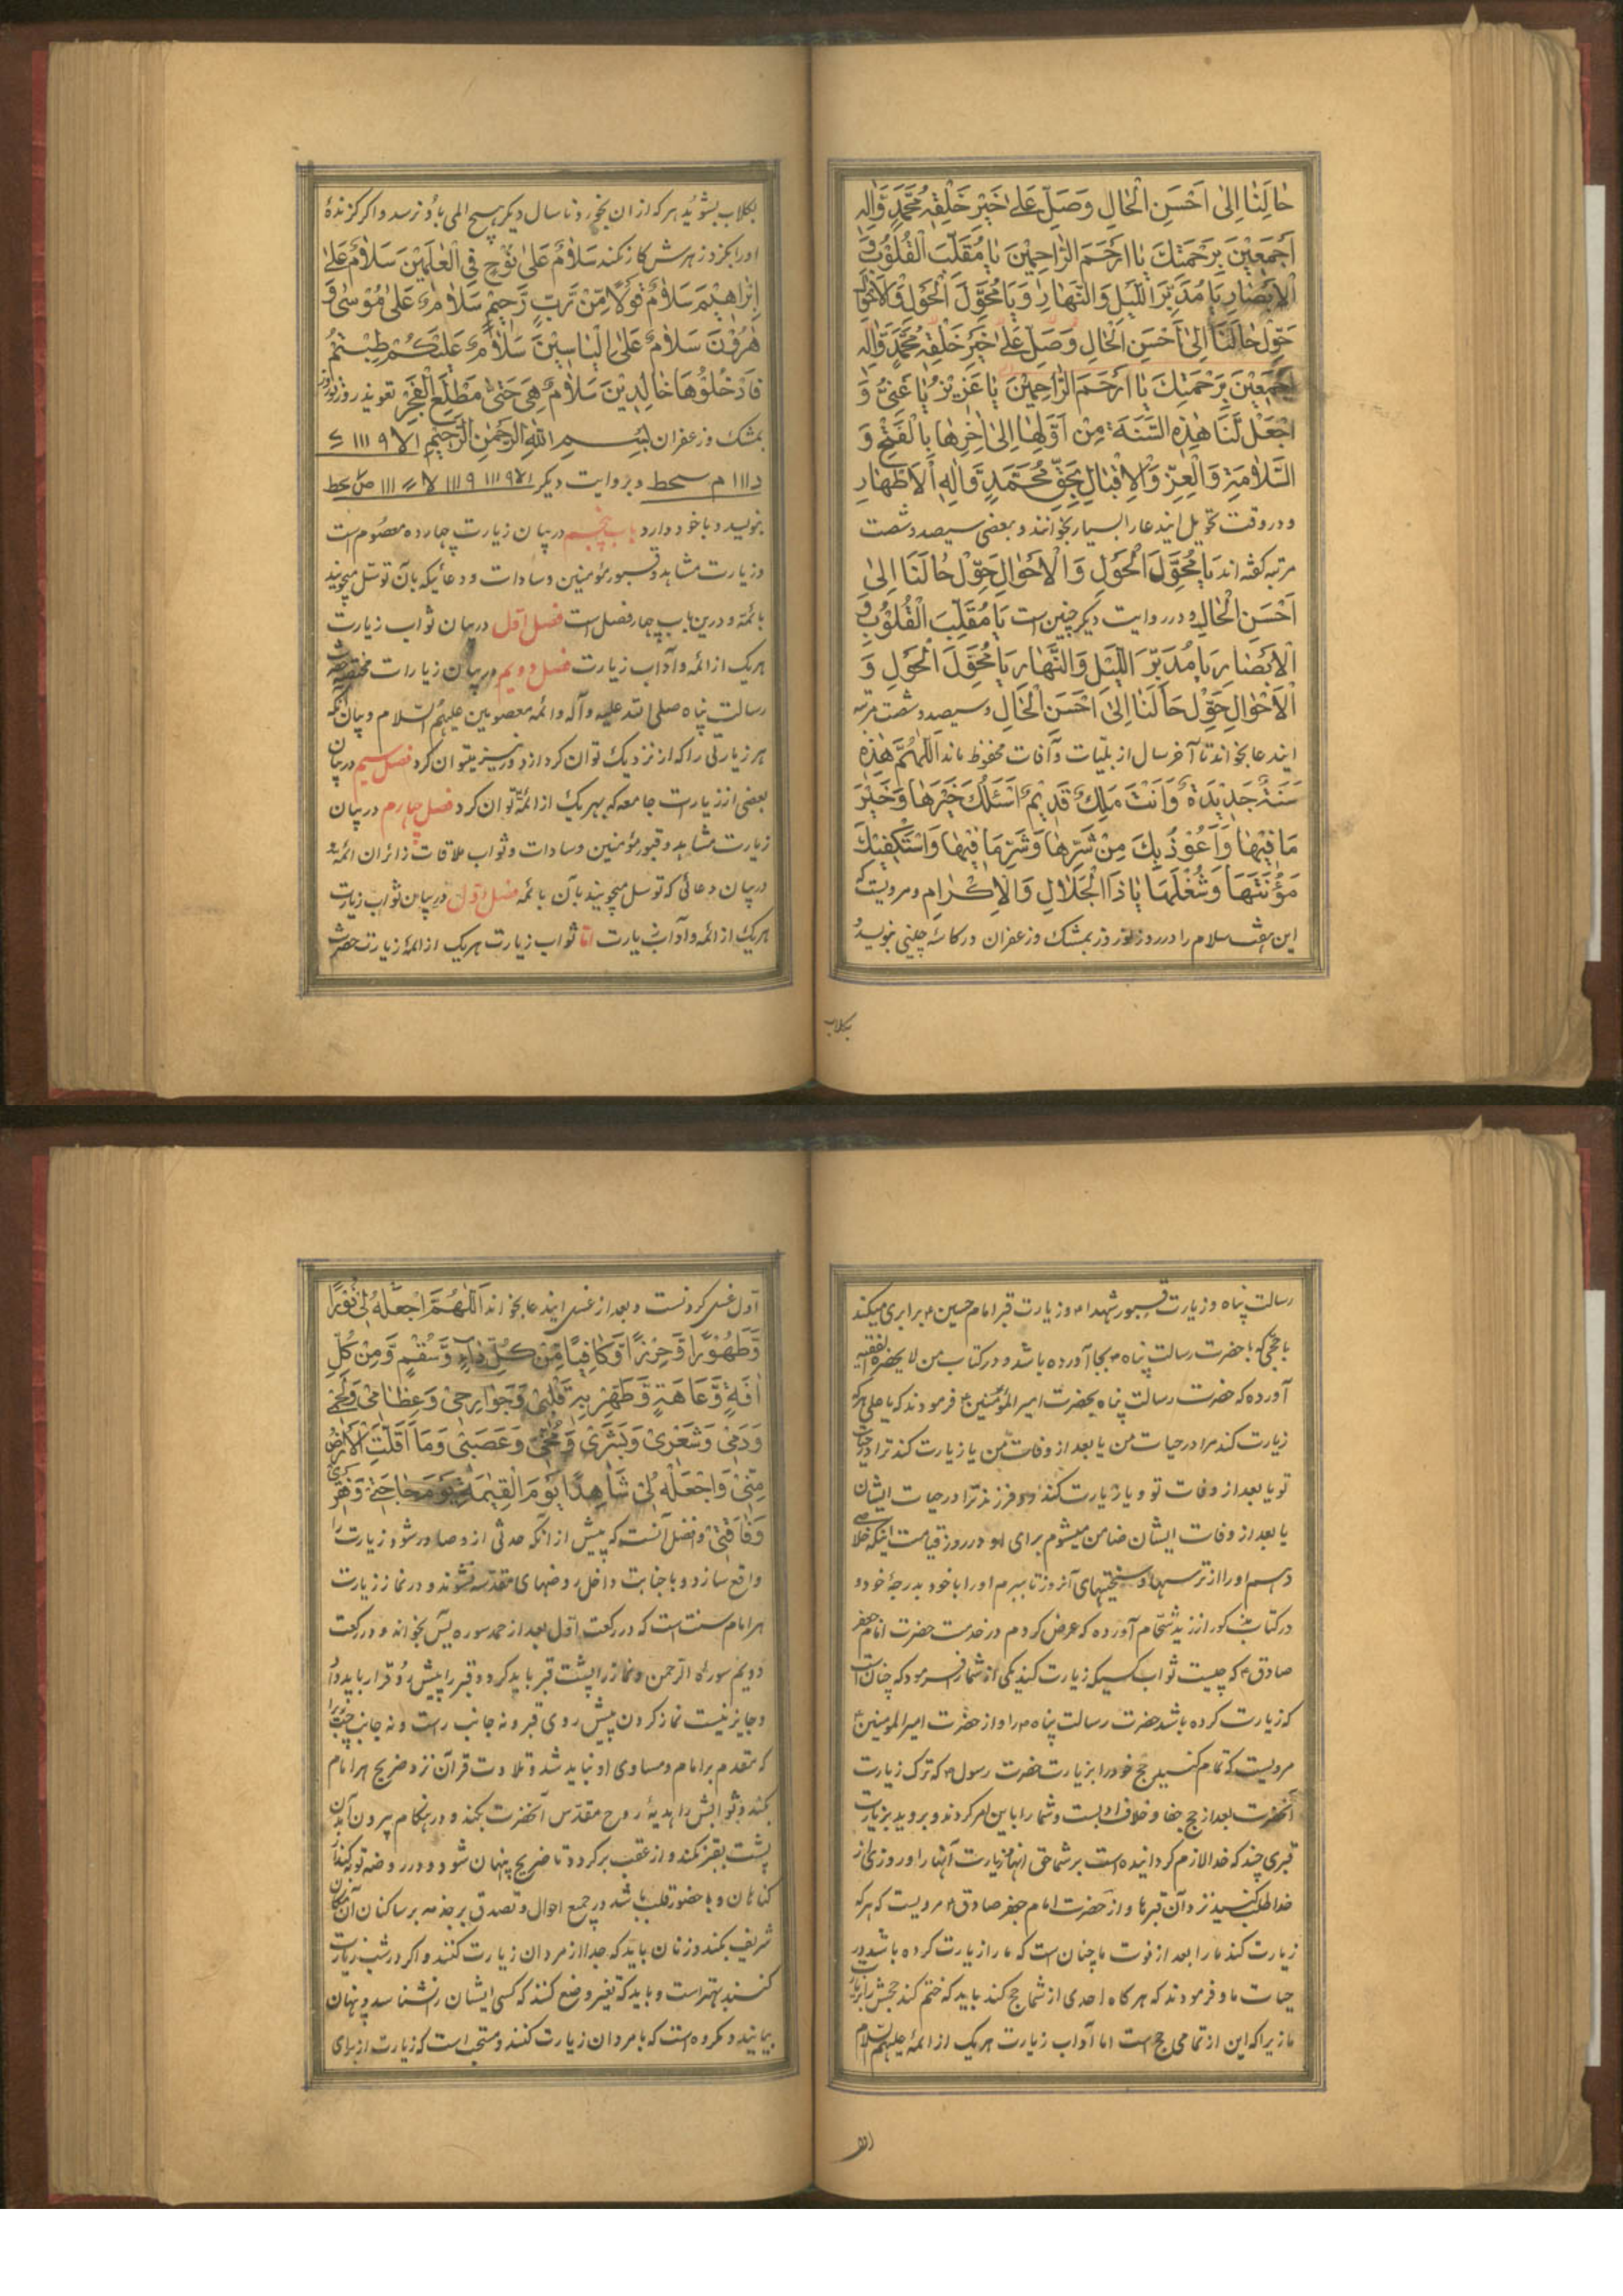 حٰالَنٰا اِلىٰ اَحْسَنِ الْحٰالِ وَصَلِّ عَلىٰ خَيْرِ خَلْقِهٖ مُحَمَّدٍ وَّاٰلِهٖ
اَجْمَعِيْنَ بِرَحْمَتِكَ يٰا اَرْحَمَ الرّٰاحِمِيْنَ يٰا مُقَلِّبَ الْقُلُوْبِ وَ
الْاَبْصٰارِ يٰا مُدَبِّرَ اللَّيْلِ وَالنَّهٰارِ وَيٰا مُحَوِّلَ الْحَوْلِ وَالْاَحْوٰالِ
حَوِّلْ حٰالَنٰا اِلىٰ اَحْسَنِ الْحٰالِ وَصَلِّ عَلىٰ خَيْرِ خَلْقِهٖ مُحَمَّدٍ وَّاٰلِهٖ
اَجْمَعِيْنَ بِرَحْمَتِكَ يٰا اَرْحَمَ الرّٰاحِمِيْنَ يٰا عَزِيْزُ يٰا غَنِيُّ وَ
اجْعَلْ لَنٰا هٰذِهِ السَّنَةَ مِنْ اَوَّلِهٰا اِلىٰ اٰخِرِهٰا بِالْفَتْحِ وَ
السَّلٰامَةِ وَالْعِزِّ وَالْاِقْبٰالِ بِحَقِّ مُحَمَّدٍ وَّاٰلِهِ الْاَطْهٰارِ
و در وقت تحویل ایندعا را بسیار بخوانند و بعضی سیصد و شصت
مرتبه گفته‌اند يٰا مُحَوِّلَ الْحَوْلِ وَالْاَحْوٰالِ حَوِّلْ حٰالَنٰا اِلىٰ
اَحْسَنِ الْحٰالِ و در روایت دیگر چنین است يٰا مُقَلِّبَ الْقُلُوْبِ وَ
الْاَبْصٰارِ يٰا مُدَبِّرَ اللَّيْلِ وَالنَّهٰارِ يٰا مُحَوِّلَ الْحَوْلِ وَ
الْاَحْوٰالِ حَوِّلْ حٰالَنٰا اِلىٰ اَحْسَنِ الْحٰالِ و سیصد و شصت مرتبه
ایندعا بخواند تا آخر سال از بلیّات و آفات محفوظ ماند اَللّٰهُمَّ هٰذِهٖ
سَنَةٌ جَدِيْدَةٌ وَاَنْتَ مَلِكٌ قَدِيْمٌ اَسْئَلُكَ خَيْرَهٰا وَخَيْرَ
مٰا فِيْهٰا وَاَعُوْذُ بِكَ مِنْ شَرِّهٰا وَشَرِّ مٰا فِيْهٰا وَاَسْتَكْفِيْكَ
مَؤُنَتَهٰا وَشُغْلَهٰا يٰا ذَا الْجَلٰالِ وَالْاِكْرٰامِ و مرویست که
این هفت سلام را در روز نوروز بمشک و زعفران در کاسهٔ چینی بنویسد و
به کلاب
بکلاب بشوید هر که از ان بخورد تا سال دیگر هیچ المی باو نرسد و اگر گزندهٔ
اورا بگزد زهرش کار نکند سَلٰامٌ عَلىٰ نُوْحٍ فِى الْعٰلَمِيْنَ سَلٰامٌ عَلىٰ
اِبْرٰاهِيْمَ سَلٰامٌ قَوْلًا مِّنْ رَّبٍّ رَّحِيْمٍ سَلٰامٌ عَلىٰ مُوْسىٰ وَ
هٰرُوْنَ سَلٰامٌ عَلىٰ اِلْيٰاسِيْنَ سَلٰامٌ عَلَيْكُمْ طِبْتُمْ
فَادْخُلُوْهٰا خٰالِدِيْنَ سَلٰامٌ هِيَ حَتّىٰ مَطْلَعِ الْفَجْرِ تعویذ روز نوروز
بمشک و زعفران بِسْمِ اللّٰهِ الرَّحْمٰنِ الرَّحِيْمِ
و بروایت دیگر
بنویسد و با خود دارد باب پنجم در بیان زیارت چهارده معصوم است
و زیارت مشاهد و قبور مؤمنین و سادات و دعائیکه بآن توسّل میجویند
بائمّه و درین باب چهار فصل است فصل اوّل در بیان ثواب زیارت
هریک از ائمه و آداب زیارت فصل دویم در بیان زیارات مختصّهٔ حضرت
رسالت پناه صلی الله علیه و آله و ائمهٔ معصومین علیهم السّلام و بیان آنکه
هر زیارتی را که از نزدیک توان کرد از دور نیز میتوان کرد فصل سیم در بیان
بعضی از زیارت جامعه که بهریک از ائمّه توان کرد فصل چهارم در بیان
زیارت مشاهد و قبور مؤمنین و سادات و ثواب ملاقات زائران ائمّه و
در بیان دعائی که توسل میجویند بآن بائمّه فصل اول در بیان ثواب زیارت
هریک از ائمّه و آداب زیارت امّا ثواب زیارت هریک از ائمّه زیارت حضرت
رسالت پناه و زیارت قبور شهدا و زیارت قبر امام حسین ع برابری میکند
با حجّی که با حضرت رسالت پناه ص بجا آورده باشد و در کتاب من لا یحضره الفقیه
آورده که حضرت رسالت پناه بحضرت امیر المؤمنین ع فرمودند که یا علی هرکه
زیارت کند مرا در حیات من یا بعد از وفات من یا زیارت کند ترا در حیات
تو یا بعد از وفات تو و یا زیارت کند دو فرزند ترا در حیات ایشان
یا بعد از وفات ایشان ضامن میشوم برای او در روز قیامت اینکه خلاصی
دهم اورا از ترسها و سختیهای آنروز تا ببرم اورا با خود بدرجهٔ خود و
در کتاب مذکور از زید شحّام آورده که عرض کردم در خدمت حضرت امام جعفر
صادق ع که چیست ثواب کسیکه زیارت کند یکی از شما را فرمود که چنان است
که زیارت کرده باشد حضرت رسالت پناه ص را و از حضرت امیر المومنین ع
مرویست که تمام کنید حج خود را بزیارت حضرت رسول ص که ترک زیارت
آنحضرت بعد از حج جفا و خلاف ادبست و شما را باین امر کردند و بروید بزیارت
قبری چند که خدا لازم گردانیده است بر شما حق آنها و زیارت آنها را و روزی از
خدا طلب کنید نزد آن قبرها و از حضرت امام جعفر صادق ع مرویست که هرکه
زیارت کند ما را بعد از فوت ما چنان است که ما را زیارت کرده باشد در
حیات ما و فرمودند که هرگاه احدی از شما حج کند باید که ختم کند حجش را بزیارت
ما زیرا که این از تمامی حج است اما آداب زیارت هریک از ائمّه علیهم السّلام
اول
اوّل غسل کردنست و بعد از غسل ایندعا بخواند اَللّٰهُمَّ اجْعَلْهُ لِيْ نُوْرًا
وَّطَهُوْرًا وَّحِرْزًا وَّكٰافِيًا مِّنْ كُلِّ دٰاءٍ وَّسُقْمٍ وَّمِنْ كُلِّ
اٰفَةٍ وَّعٰاهَةٍ وَّطَهِّرْ بِهٖ قَلْبِيْ وَجَوٰارِحِيْ وَعِظٰامِيْ وَلَحْمِيْ
وَدَمِيْ وَشَعْرِيْ وَبَشَرِيْ وَمُخِّيْ وَعَصَبِيْ وَمٰا اَقَلَّتِ الْاَرْضُ
مِنِّيْ وَاجْعَلْهُ لِيْ شٰاهِدًا يَوْمَ الْقِيٰمَةِ يَوْمَ حٰاجَتِيْ وَفَقْرِيْ
وَفٰاقَتِيْ و افضل آنست که پیش از آنکه حدثی ازو صادر شود زیارت را
واقع سازد و با جنابت داخل روضهای مقدّسه نشوند و در نماز زیارت
هر امام سنت است که در رکعت اوّل بعد از حمد سوره یٓس بخواند و در رکعت
دویم سورهٔ الرّحمن و نماز را پشت قبر باید کرد و قبر را پیش رو قرار باید داد
و جایز نیست نماز کردن پیش روی قبر و نه جانب راست و نه جانب چپ زیرا
که متقدم بر امام و مساوی او نباید شد و تلاوت قرآن نزد ضریح هر امام
بکند و ثوابش را هدیهٔ روح مقدّس آنحضرت بکند و در هنگام بیرون آمدن
پشت بقبر نکند و از عقب برگردد تا ضریح پنهان شود و در روضه توبه کند از
گناهان و با حضور قلب باشد در جمیع احوال و تصدق بر خدمه بر ساکنان آن مکان
شریف بکند و زنان باید که جدا از مردان زیارت کنند و اگر در شب زیارت
کنند بهتر است و باید که تغییر وضع کنند که کسی ایشان را نشناسد و پنهان
بیایند و مکروه است که با مردان زیارت کنند و مستحب است که زیارت از برای